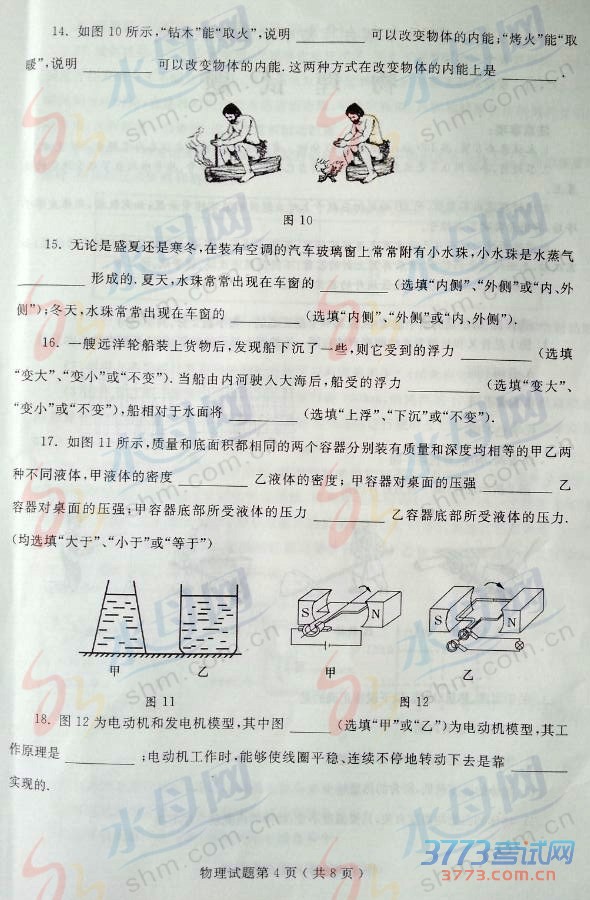 14. 如图10所示,“钻木”能“取火”,说明________可以改变物体的内能;“烤火”能“取
暖”,说明________可以改变物体的内能.这两种方式在改变物体的内能上是________.
图10
15. 无论是盛夏还是寒冬,在装有空调的汽车玻璃窗上常常附有小水珠,小水珠是水蒸气
________形成的.夏天,水珠常常出现在车窗的________(选填“内侧”、“外侧”或“内、外
侧”);冬天,水珠常常出现在车窗的________(选填“内侧”、“外侧”或“内、外侧”).
16. 一艘远洋轮船装上货物后,发现船下沉了一些,则它受到的浮力________(选填
“变大”、“变小”或“不变”).当船由内河驶入大海后,船受的浮力________(选填“变大”、
“变小”或“不变”),船相对于水面将________(选填“上浮”、“下沉”或“不变”).
17. 如图11所示,质量和底面积都相同的两个容器分别装有质量和深度均相等的甲乙两
种不同液体,甲液体的密度________乙液体的密度;甲容器对桌面的压强________乙
容器对桌面的压强;甲容器底部所受液体的压力________乙容器底部所受液体的压力.
(均选填“大于”、“小于”或“等于”)
S N S N
甲 乙 甲 乙
图11 图12
18. 图12为电动机和发电机模型,其中图____(选填“甲”或“乙”)为电动机模型,其工
作原理是________;电动机工作时,能够使线圈平稳、连续不停地转动下去是靠________
实现的.
物理试题第4页(共8页)
水母网
shm.com.cn
3773考试网
3773.com.cn